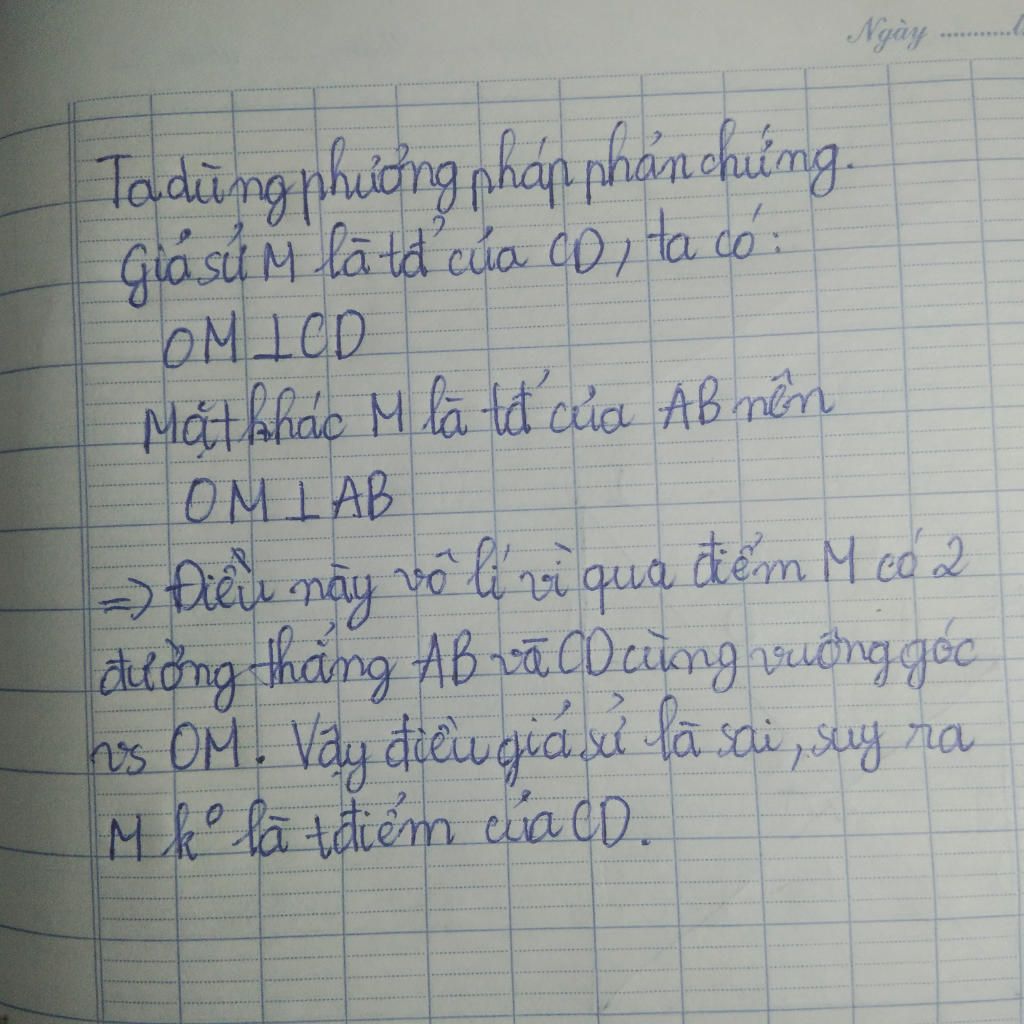 Ngày ...........
Ta dùng phương pháp phản chứng.
Giả sử M là tđ của CD, ta có:
OM ⊥ CD
Mặt khác M là tđ của AB nên
OM ⊥ AB
=> Điều này vô lí vì qua điểm M có 2
đường thẳng AB và CD cùng vuông góc
vs OM. Vậy điều giả sử là sai, suy ra
M k° là tđiểm của CD.